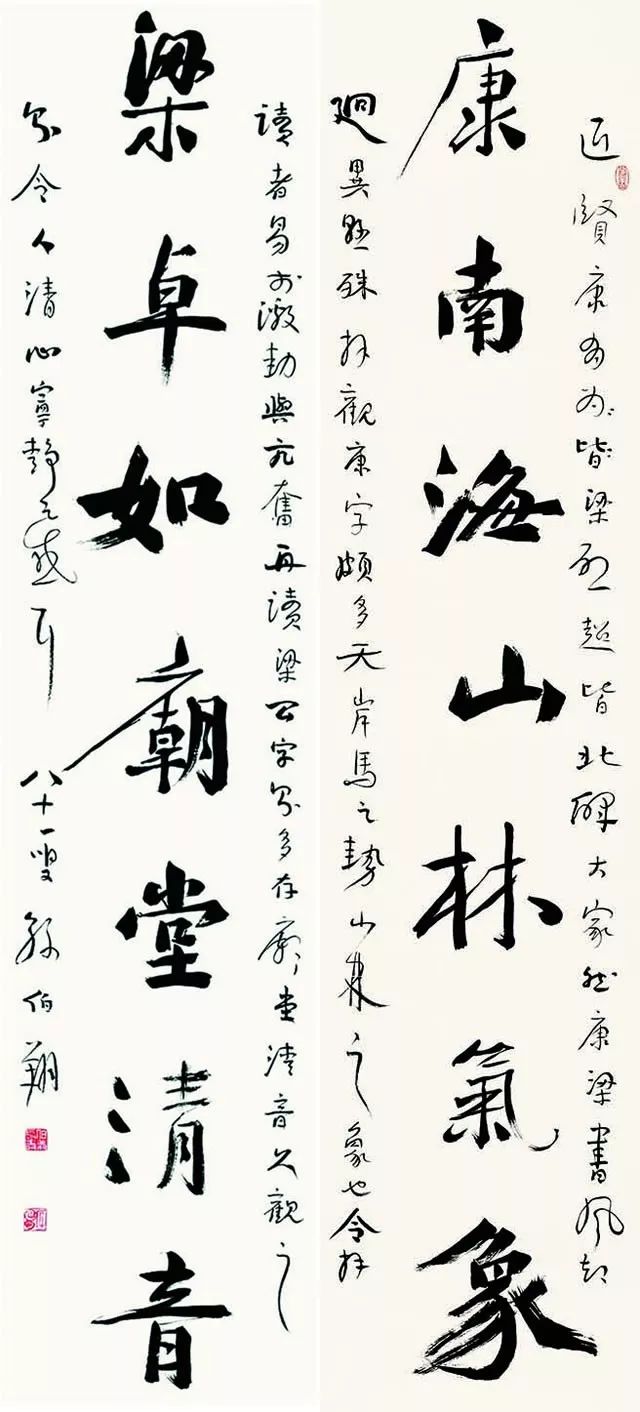 近賢康有為皆梁啟超皆北碑大家然康梁書風却
康南海山林氣象
迴異懸殊拜觀康字頗多天岸馬之勢山林之象也令拜
讀者易於激動與亢奮再讀梁公字則多存廟堂清音久觀之
梁卓如廟堂清音
則令人清心寧靜之感耳 八十一叟孫伯翔